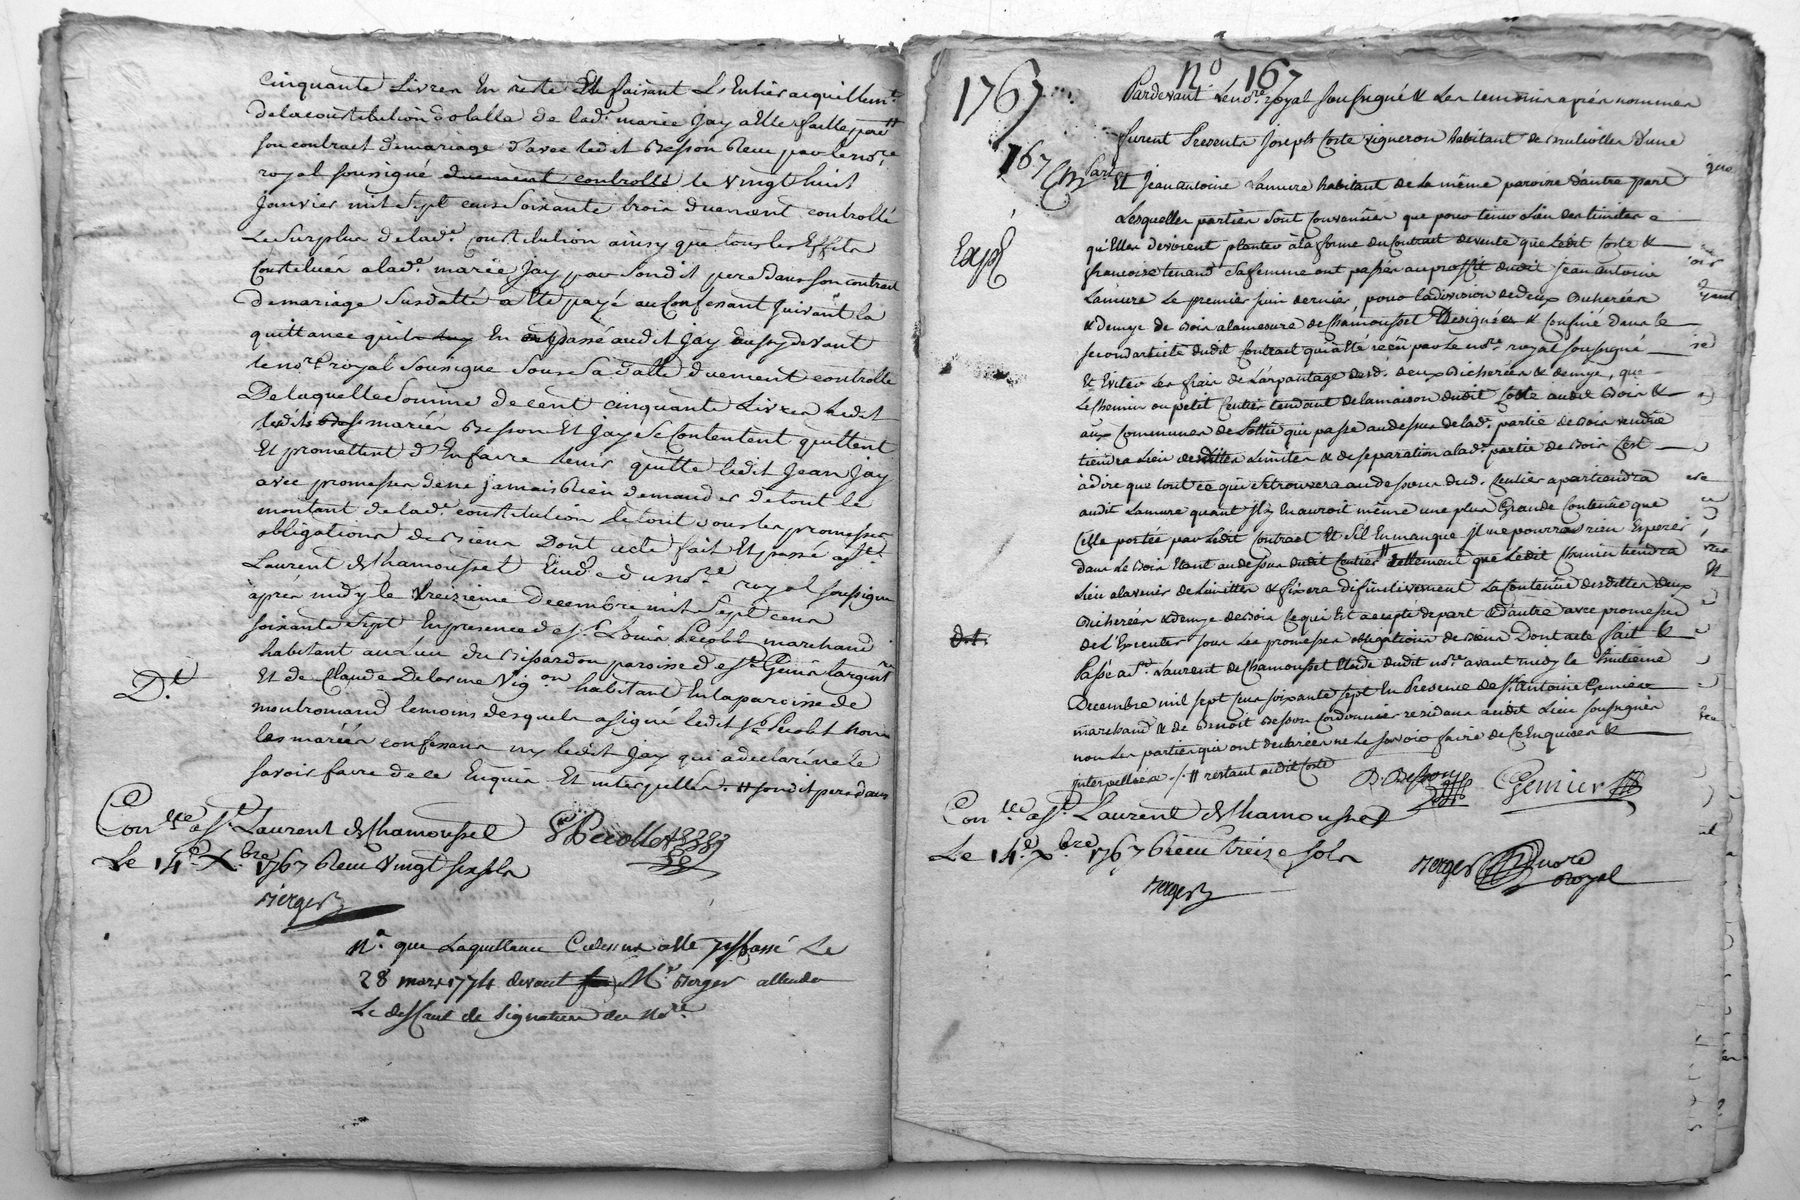 cinquante Livres En reste Et faisant L'Entier acquittemt.
de la constitution dotalle de lad.e marie Jay a Elle faitte par
son contract demariage d'avec ledit Besson Reçu par le nore
royal soussigné duement controllé le vingt huit
Janvier mil sept cens soixante trois duement controllé
Le Surplus de lad.e constitution ainsy que tous les Effets
Constitués a lad.e marie Jay par sondit pere dans son contract
demariage susdatté a Eté payé au Confessant suivant la
quittance quil En a passé audit Jay aussy devant
le nore royal soussigné sous sa datte duement controllé
De laquelle somme de cent cinquante Livres ledit
lesdits mariés Besson Et Jay se Contentent quittent
Et promettent d'En faire tenir quitte ledit Jean Jay
avec promesses de ne jamais Rien demander de tout le
montant de lad.e constitution le tout sous les promesses
obligations de biens Dont acte fait Et passé a St.
Laurent de Chamousset Etude du nore royal soussigné
après midy le treizieme Decembre mil sept cens
soixante sept En presence de sr. Louis Pecollet marchand
habitant au lieu du Bissardon paroisse de St. Genis Largent.re
Et de Claude Delorme Vig.on habitant En la paroisse de
montromand temoins desquels a signé ledit sr. Pecollet non
les mariés confessans ny ledit Jay qui a declaré ne le
savoir faire de ce Enquis Et interpellés. # sondit pere dans
D.t
Con.lle a St. Laurent de Chamousset
Le 14e Xbre 1767 Reçu vingt six sols
Berger
Pecollet
N.a que la quittance Cydessus a Eté passé Le
28 mars 1774 devant Me. Berger attendu
Le deffaut de signature du Nore
1767
no 167
167
Pardevant Le nore. royal soussigné & Les temoins après nommés
furent Presents Joseph Coste vigneron habitant de Brullioles D'une
part
Et Jean antoine Lamure habitant de la même paroisse d'autre part
Lesquelles parties sont Convenües que pour tenir Lieu des limites
qu'Elles devoient planter à la forme du Contract de vente que Ledit Coste &
francoise tenand sa femme ont passé au proffit dudit Jean antoine
Lamure Le premier juin dernier, pour la division de deux Bicherées
& demye de Bois a la mesure de Chamousset Designées & Confiné dans le
second article dudit Contract qui a Eté reçu par Le nore. royal soussigné
Et Eviter Les frais de L'arpantage desd. deux Bicherées & demye, que
Le Chemin ou petit Sentier tendant de la maison dudit Coste audit Bois &
aux Communes de Lottu qui passe au dessus de lad. partie de Bois vendüe
tiendra Lieu desdittes Limites & de separation a lad. partie de Bois C'est
à dire que tout ce qui se trouvera au dessous dud. Sentier apartiendra
audit Lamure quant Il y En auroit même une plus Grande Contenüe que
Celle portée par Ledit Contract Et s'il En manque Il ne pourra rien Esperer
dans Le Bois Etant au dessus dudit Sentier # tellement que Ledit Chemin tiendra
Lieu a l'avenir de Limittes & fixera difinitivement La Contenüe desdittes deux
Bicherées & demye de Bois Ce qui Est accepté de part & d'autre avec promesses
de L'Executer sous Les promesses obligations de Biens Dont acte fait &
Passé a St. Laurent de Chamousset Etude dudit nore avant midy le huitieme
Decembre mil sept Cens soixante sept En Presence de sr. Antoine Gemier
marchand & de Benoit Besson Cordonnier residans audit Lieu soussignés
non Les parties qui ont declarées ne Le savoir faire de Ce Enquises &
Interpellées. # restant audit Coste
Exp.é
B. Besson
Gemier
Con.lle a St. Laurent de Chamousset
Le 14.e Xbre 1767 Reçu treize sols
Berger
Berger nore
Royal